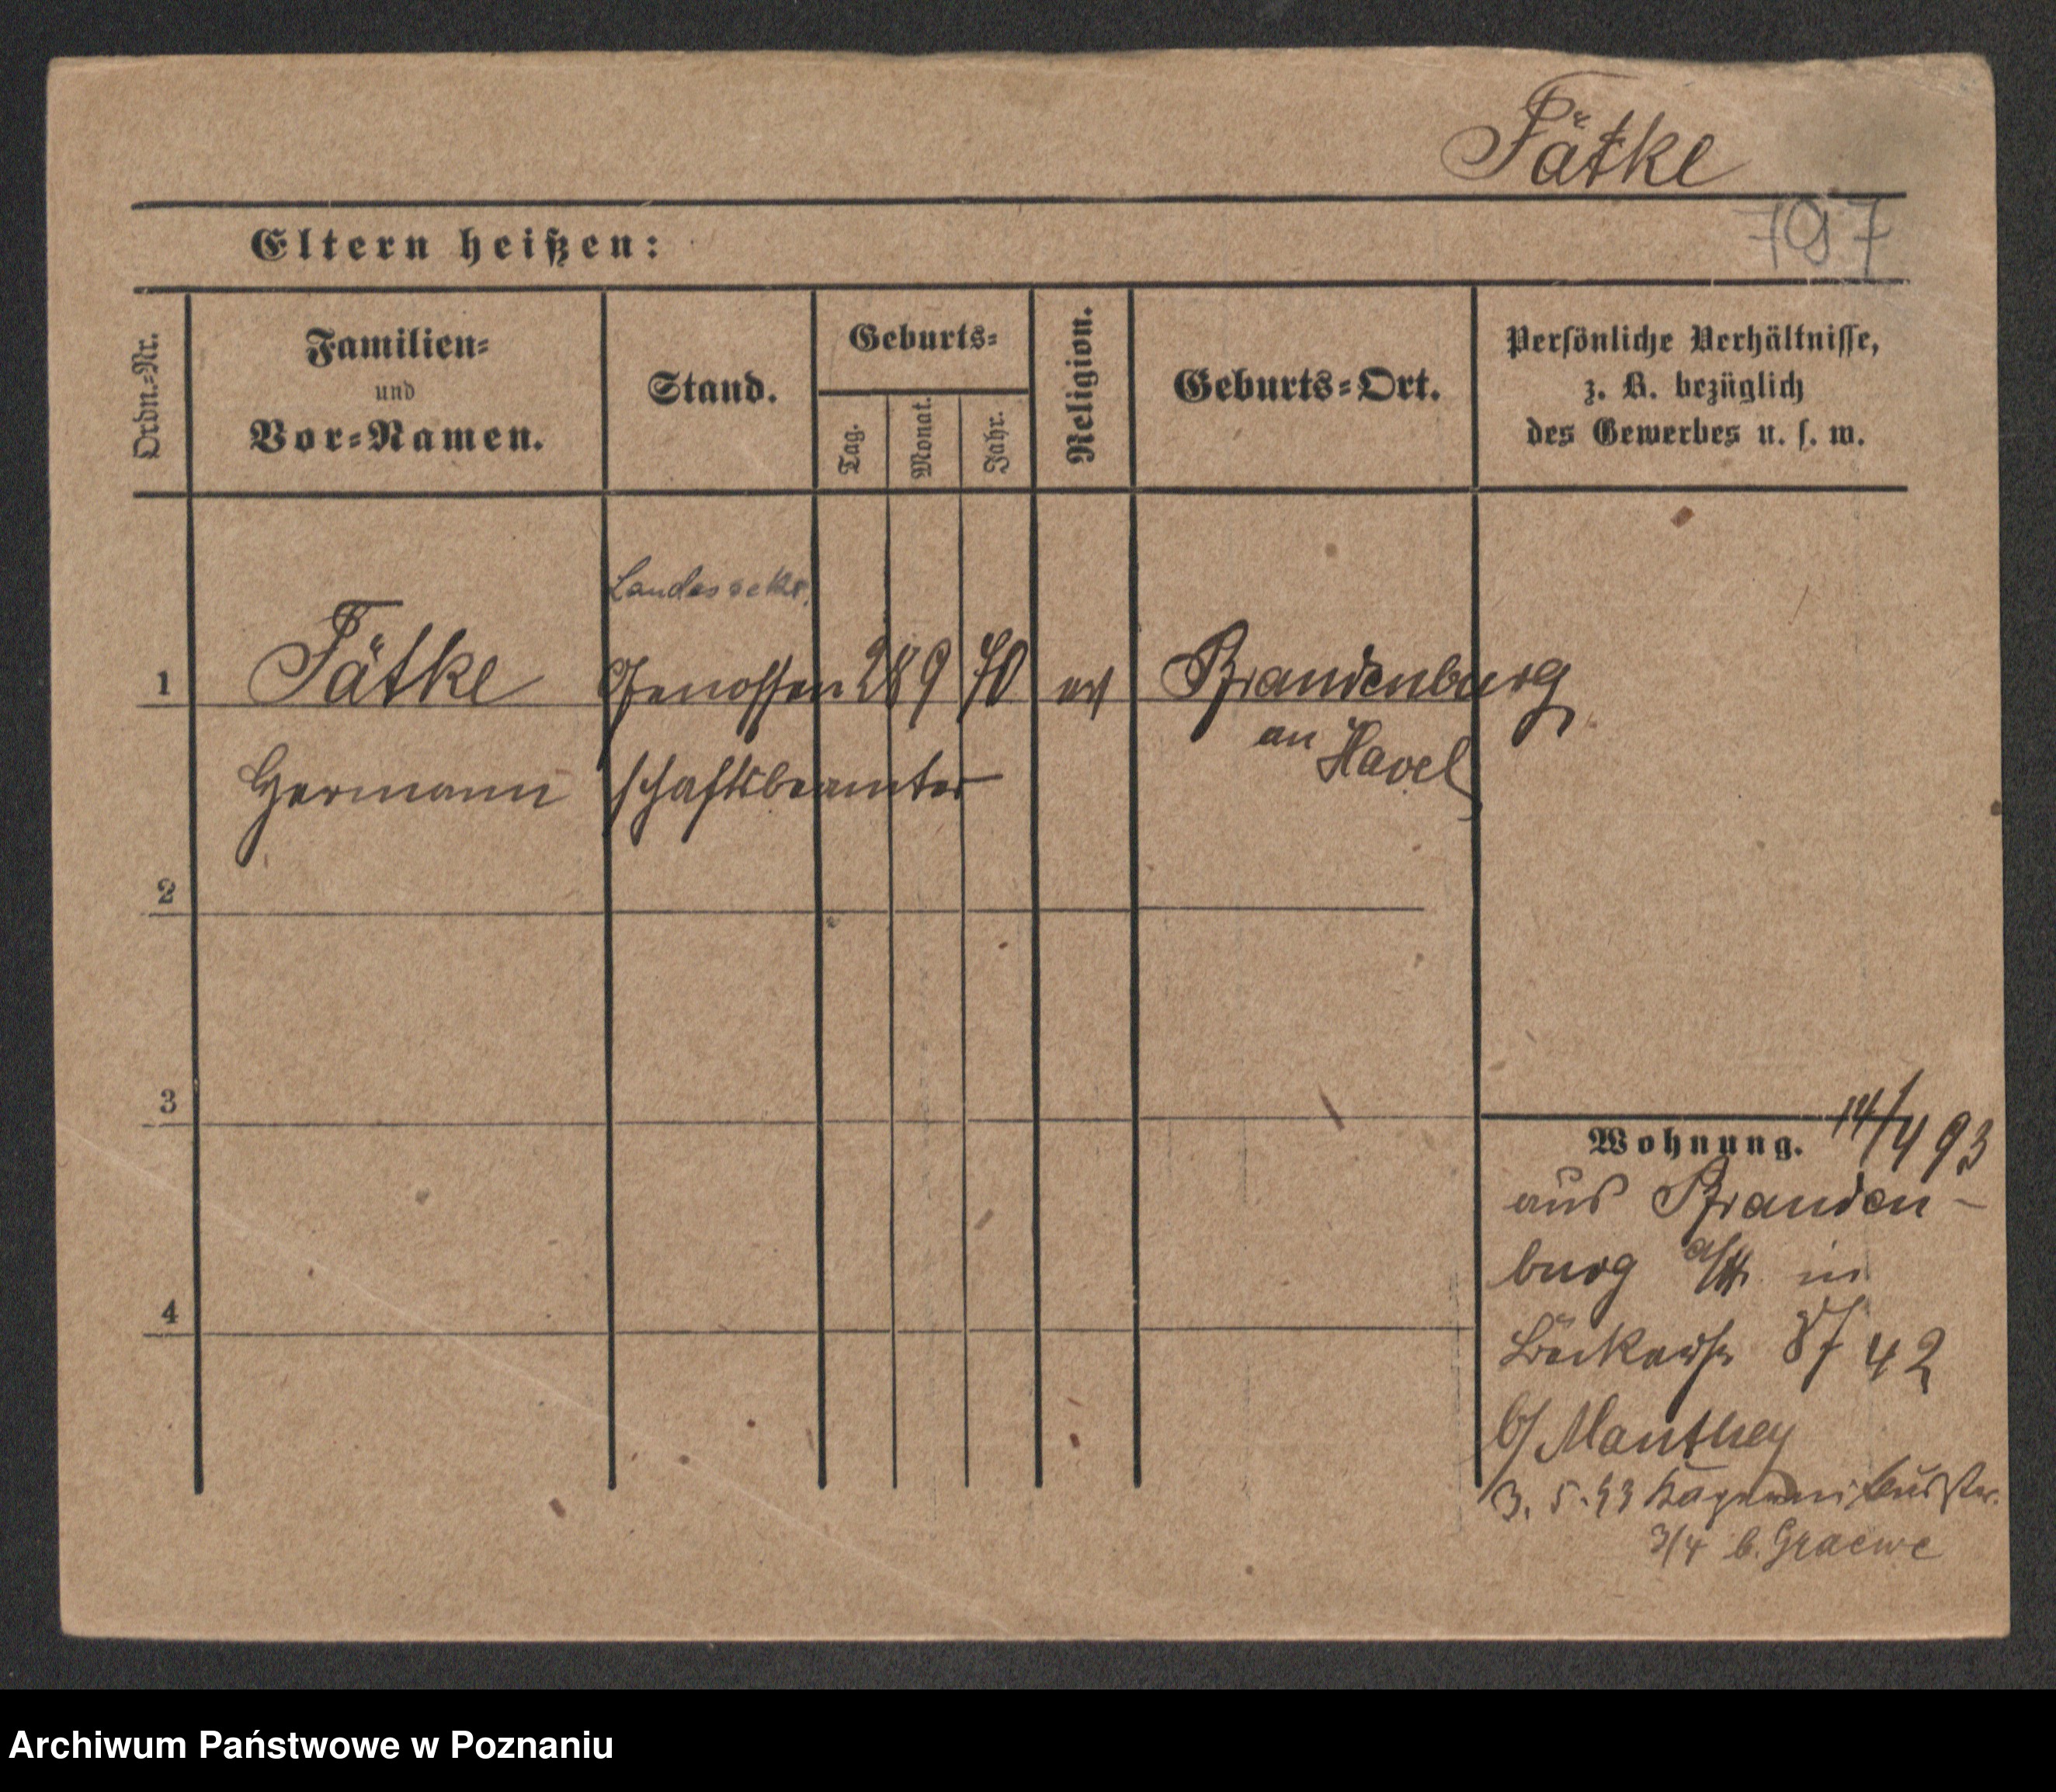 Fätke
797
Eltern heißen:
Ordn.=Nr.
Familien=
und
Vor=Namen.
Stand.
Geburts=
Tag.
Monat.
Jahr.
Religion.
Geburts=Ort.
Persönliche Verhältnisse,
z. B. bezüglich
des Gewerbes u. s. w.
Landessekr.
1 Fätke Genossen 28 9 70 ev Brandenburg
an Havel
Hermann schaftsbeamter
2
3
4
Wohnung. 14/4 93
aus Branden-
burg a/H. in
42
b/ Manthey
3. 5. 93
3/4 b. Graewe
Archiwum Państwowe w Poznaniu